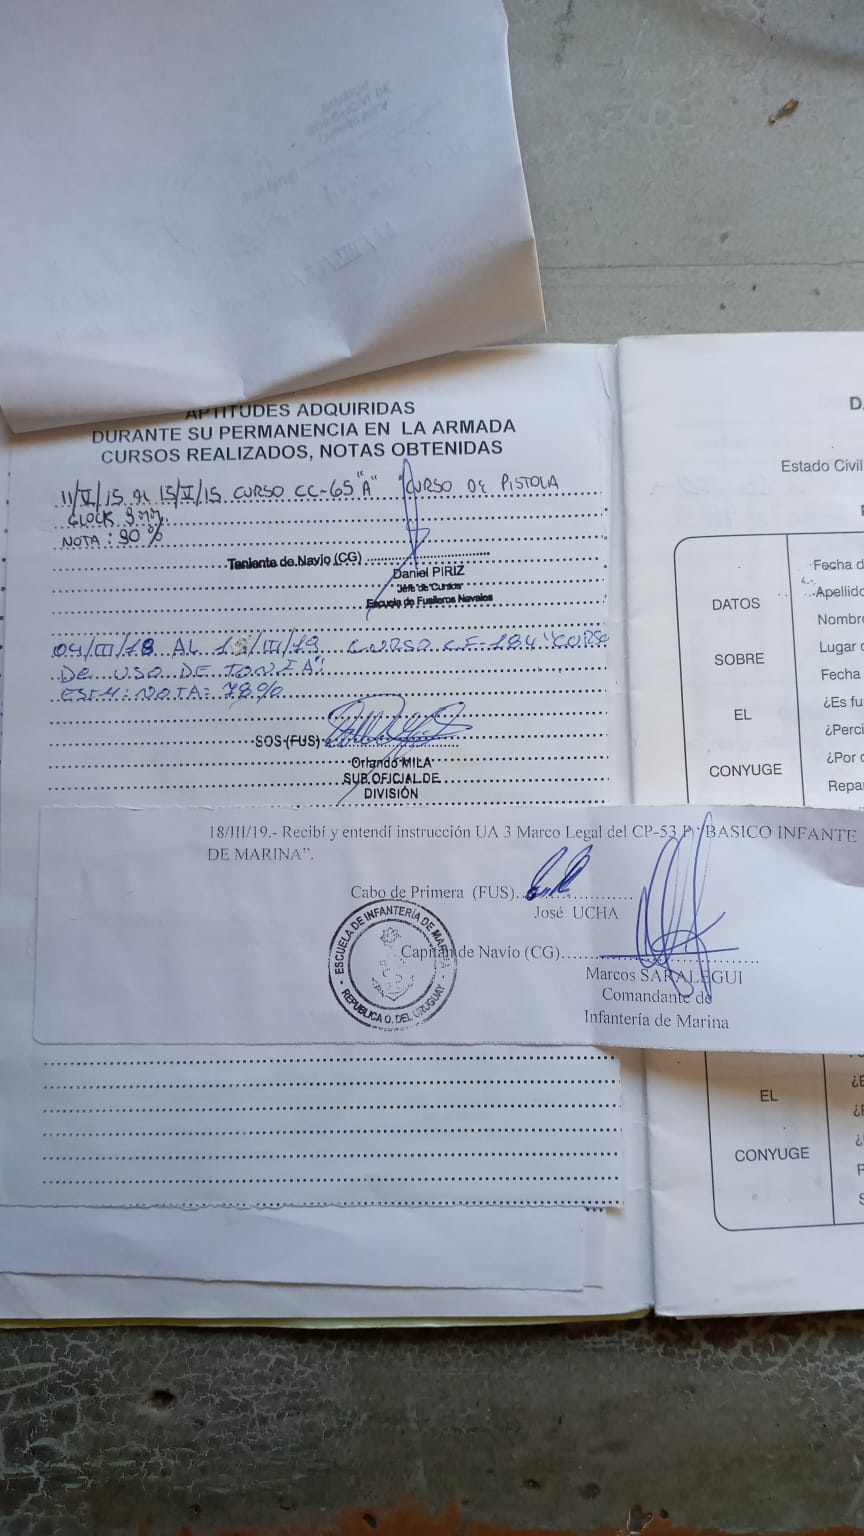 APTITUDES ADQUIRIDAS
DURANTE SU PERMANENCIA EN LA ARMADA
CURSOS REALIZADOS, NOTAS OBTENIDAS
11/V/15 AL 15/V/15 CURSO CC-65 "A" "CURSO DE PISTOLA
GLOCK 9mm.
NOTA: 90%
Teniente de Navío (CG)
Daniel PIRIZ
Jefe de Cursos
Escuela de Fusileros Navales
04/III/18 AL 15/III/19 CURSO C.I-184 "CURSO
DE USO DE TONFA".
ESIM: NOTA: 78%
SOS (FUS)
Orlando MILA
SUB OFICIAL DE
DIVISIÓN
18/III/19.- Recibí y entendí instrucción UA 3 Marco Legal del CP-53 "BASICO INFANTE
DE MARINA".
Cabo de Primera (FUS)
José UCHA
ESCUELA DE INFANTERÍA DE MARINA
REPUBLICA O. DEL URUGUAY
Capitán de Navío (CG)
Marcos SARALEGUI
Comandante de
Infantería de Marina
Estado Civil
DATOS
SOBRE
EL
CONYUGE
Fecha d
Apellido
Nombre
Lugar
Fecha
¿Es fu
¿Perci
¿Por
Repa
EL
CONYUGE